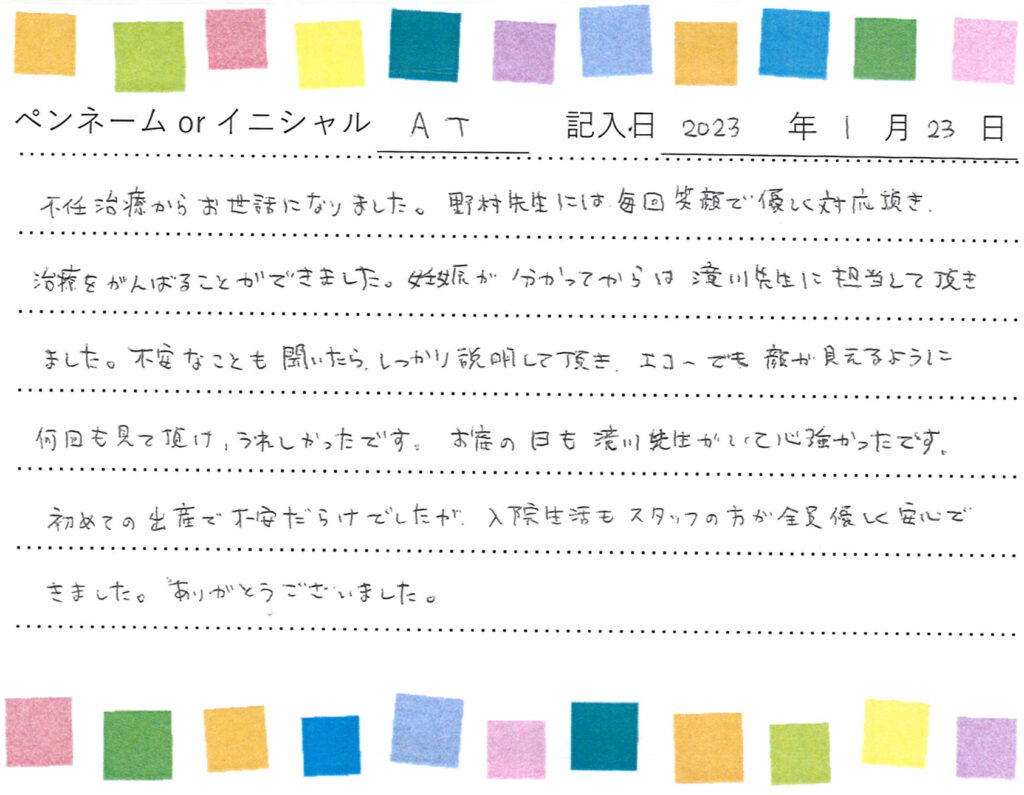 ペンネーム or イニシャル A T 記入日 2023 年 1 月 23 日
不任治療からお世話になりました。野村先生には毎回笑顔で優しく対応頂き、
治療をがんばることができました。妊娠が分かってからは滝川先生に担当して頂き
ました。不安なことも聞いたら、しっかり説明して頂き、エコーでも顔が見えるように
何回も見て頂け、うれしかったです。お産の日も滝川先生がいて心強かったです。
初めての出産で不安だらけでしたが、入院生活もスタッフの方が全員優しく安心で
きました。ありがとうございました。